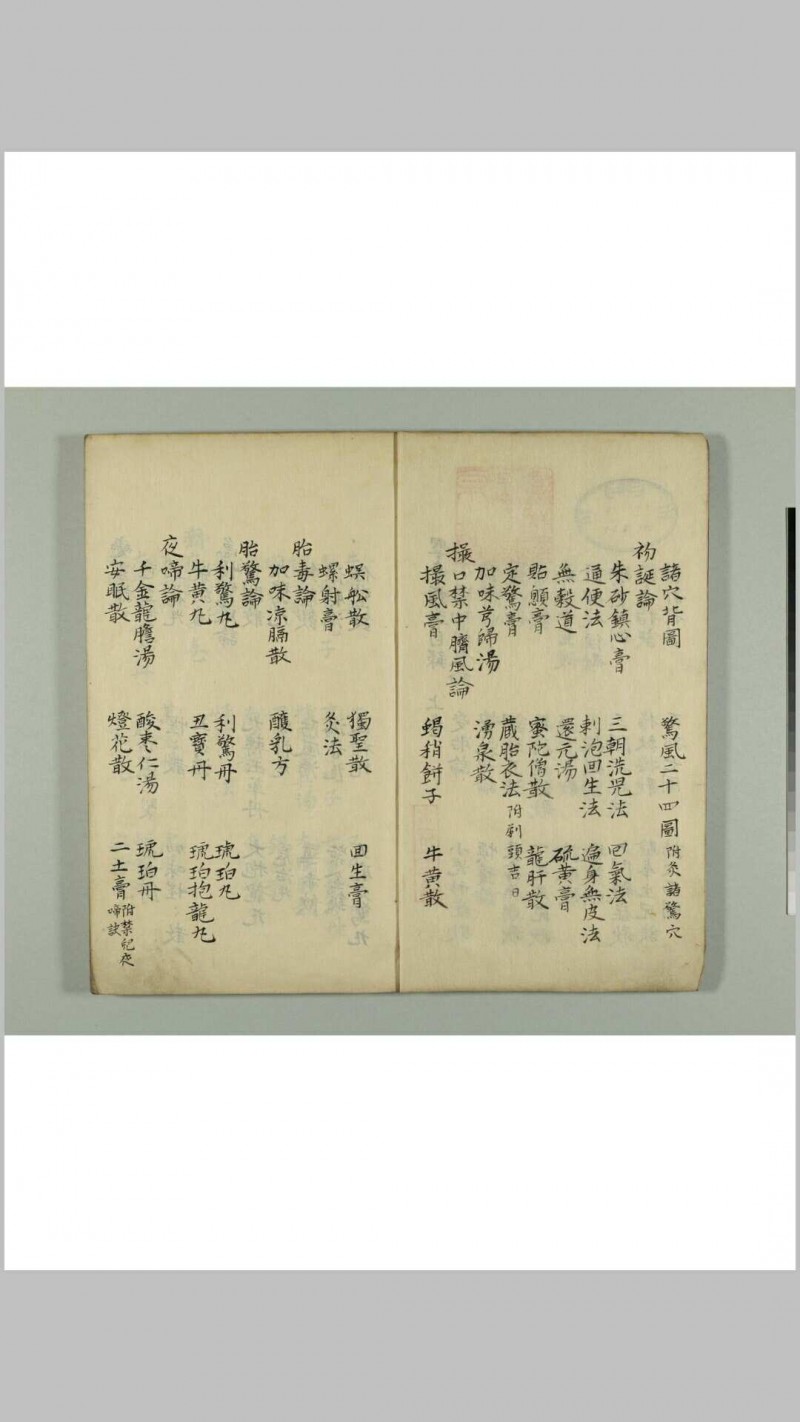 諸穴背圖　驚風二十四圖 附灸諸驚穴
初誕論
朱砂鎮心膏　三朝洗児法　回氣法
通便法　刺泡回生法　遍身無皮法
無穀道　還元湯　硫黄膏
貼顖膏　蜜陀僧散　龍肝散
定驚膏　蔵胎衣法 附剃頭吉日
加味芎歸湯　湧泉散
撮口禁中臍風論
撮風膏　蝎稍餅子　牛黄散
蜈蚣散　獨聖散　回生膏
螺射膏　灸法
胎毒論
加味凉膈散　釀乳方
胎驚論
利驚丸　利驚丹　琥珀丸
牛黄丸　丑寶丹　琥珀抱龍丸
夜啼論
千金龍膽湯　酸枣仁湯　琥珀丹
安眠散　燈花散　二土膏 附禁児夜啼訣